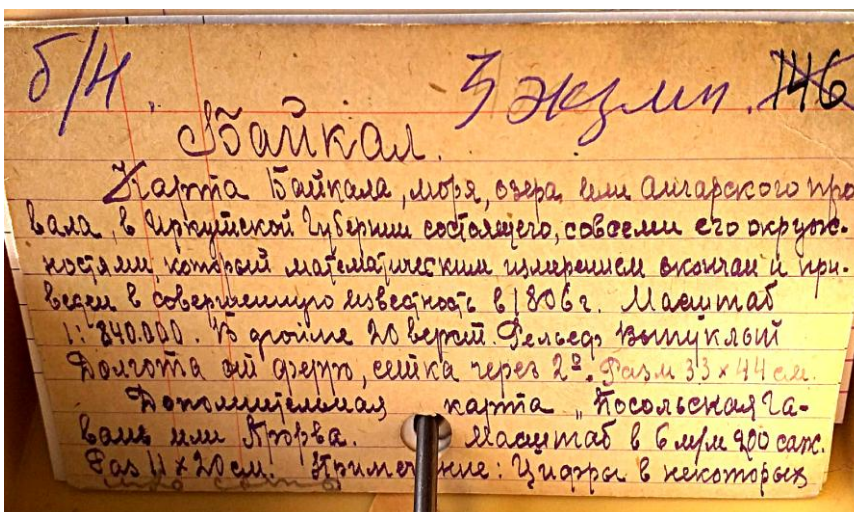 б/н. 3 экзмп. 146
Байкал.
Карта Байкала, моря, озера или Ангарского про
вала, в Иркутской Губернии состоящего, со всеми его окруж-
ностями, который математическим измерением окончан и при-
веден в совершенную известность в 1806 г. Масштаб
1:840.000. В дюйме 20 верст. Рельеф выпуклый
Долгота от Ферро, сетка через 2º. Разм 33 x 44 см.
Дополнительная карта „Посольская га-
вань или Прорва. Масштаб в 6 м/м 200 саж.
Раз 11 x 20 см. Примечание: Цифры в некоторых